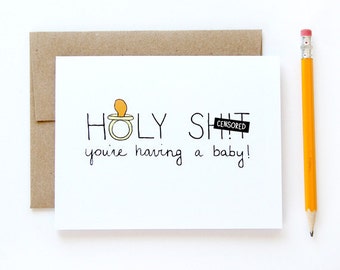 HOLY SH!T
CENSORED
you're having a baby!